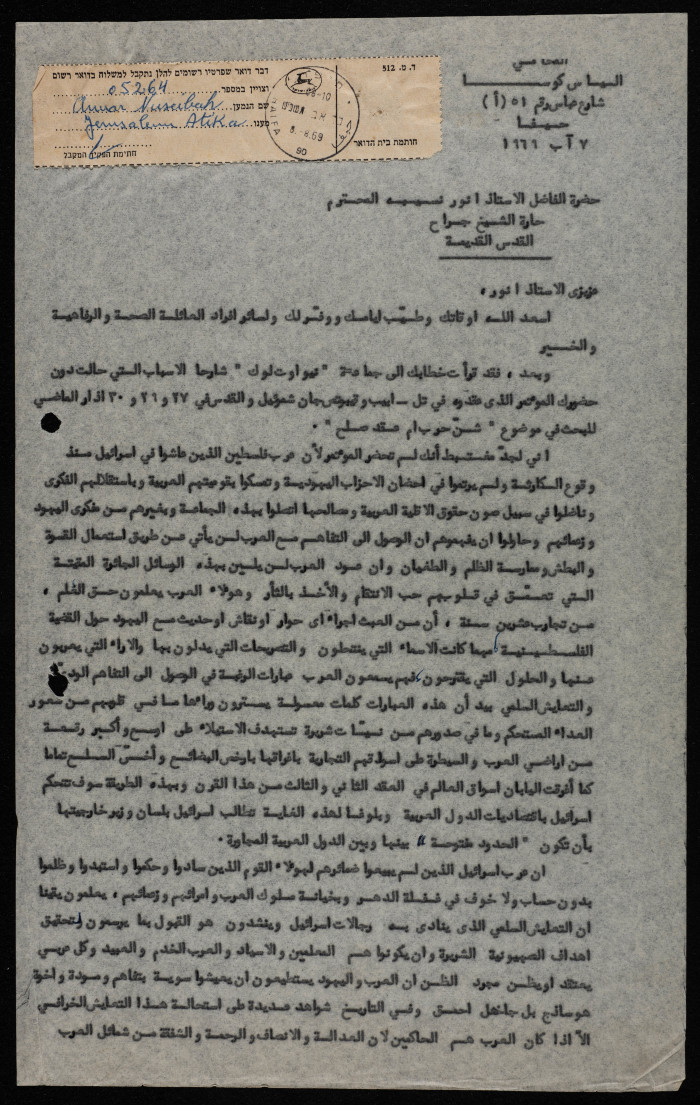 ד. מ. 512
דבר דואר שפרטיו רשומים להלן נתקבל למשלוח בדואר רשום
וצויין במספר 05264
שם הנמען Anwar Nuseibah
מענו Jerusalem Atika
חותמת בית הדואר
חתימת הפקיד המקבל
HAIFA
8.-8.69
90
المحامي
الياس كوسا
شارع عباس رقم ٥١ (أ)
حيفا
٧ آب ١٩٦٩
حضرة الفاضل الاستاذ انور نسيبه المحترم
حارة الشيخ جراح
القدس القديمة
عزيزي الاستاذ انور،
اسعد الله اوقاتك وطيّب ايامك ووفّر لك ولسائر افراد العائلة الصحة والرفاهية
والخير
وبعد، فقد قرأت خطابك الى جماعة "نيو اوتلوك" شارحا الاسباب التي حالت دون
حضورك المؤتمر الذي عقدوه في تل ـ ابيب و جان شموئيل والقدس في ٢٧ و ٢٦ و ٣٠ اذار الماضي
للبحث في موضوع "شنّ حرب ام عقد صلح".
اني لجدّ مغتبط أنك لم تحضر المؤتمر لأن عرب فلسطين الذين عاشوا في اسرائيل منذ
وقوع الكارثة ولم يرتموا في احضان الاحزاب اليهودية وتمسكوا بقوميتهم العربية وباستقلالهم الفكري
وناضلوا في سبيل صون حقوق الاقلية العربية ومصالحها اتصلوا بهذه الجماعة وبغيرهم من مفكري اليهود
وزعمائهم وحاولوا ان يفهموهم ان الوصول الى التفاهم مع العرب لن يأتي عن طريق استعمال القسوة
والبطش وممارسة الظلم والطغيان وان عود العرب لن يلين بهذه الوسائل الجائرة المقيتة
التي تعمّق في قلوبهم حب الانتقام والأخذ بالثأر وهؤلاء العرب يعلمون حق العلم،
من تجارب عشرين سنة، أن من العبث اجراء اى حوار او نقاش او حديث مع اليهود حول القضية
الفلسطينية مهما كانت الاسماء التي ينتحلون والتصريحات التي يدلون بها والاراء التي يعربون
عنها والحلول التي يقترحون فهم يسمعون العرب عبارات الرغبة في الوصول الى التفاهم الودّي
والتعايش السلمي بيد أن هذه العبارات كلمات معسولة يسترون وراءها ما في قلوبهم من شعور
العداء المستحكم وما في صدورهم من نيّات شريرة تستهدف الاستيلاء على اوسع وأكبر رقعة
من اراضي العرب والسيطرة على اسواقهم التجارية باغراقها بارخص البضائع وأخسّ السلع تماما
كما أغرقت اليابان اسواق العالم في العقد الثاني والثالث من هذا القرن وبهذه الطريقة سوف تتحكم
اسرائيل باقتصاديات الدول العربية وبلوغا لهذه الغاية تطالب اسرائيل بلسان وزير خارجيتها
بأن تكون "الحدود مفتوحة" بينها وبين الدول العربية المجاورة.
ان عرب اسرائيل الذين لم يبيعوا ضمائرهم لهؤلاء القوم الذين سادوا وحكموا واستبدوا وظلموا
بدون حساب ولا خوف في غفلة الدهر وبخيانة ملوك العرب وامرائهم وزعمائهم، يعلمون يقينا
ان التعايش السلمي الذى ينادى به رجالات اسرائيل وينشدون هو القبول بما يرسمون لتحقيق
اهداف الصهيونية الشريرة وان يكونوا هم المعلمين والاسياد والعرب الخدم والعبيد وكل عربي
يعتقد او يظن مجرد الظن ان العرب واليهود يستطيعون ان يعيشوا سوية بتفاهم ومودة واخوة
هو ساذج بل جاهل احمق وفي التاريخ شواهد عديدة على استحالة هذا التعايش الخرافي
الاّ اذا كان العرب هم الحاكمين لان العدالة والانصاف والرحمة والشفقة من شمائل العرب